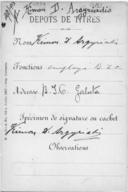 Kimon D. Aragriadis
DEPOTS DE TITRES
Nom Kimon D. Argyriadis
Fonctions employé B. I. O.
Adresse B. I. O. Galata
Spécimen de signature ou cachet
Kimon D. Argyriadis
Observations